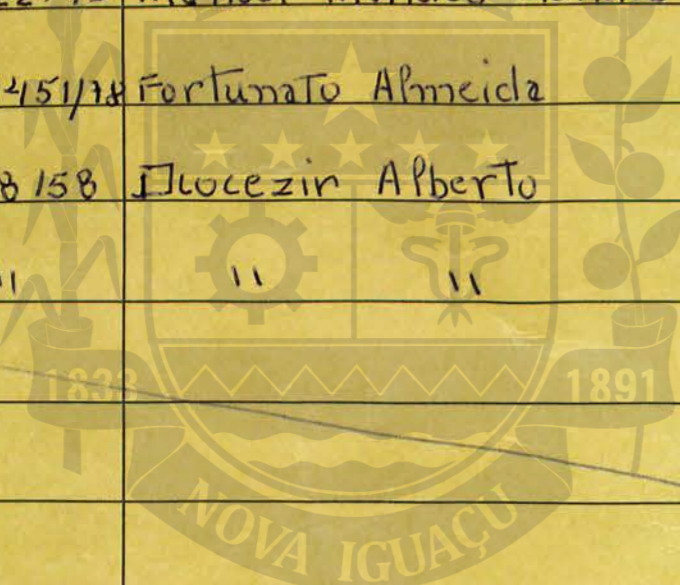 451/78 Fortunato Almeida
8158 Alberto
" " "
1833 1891
NOVA IGUAÇU